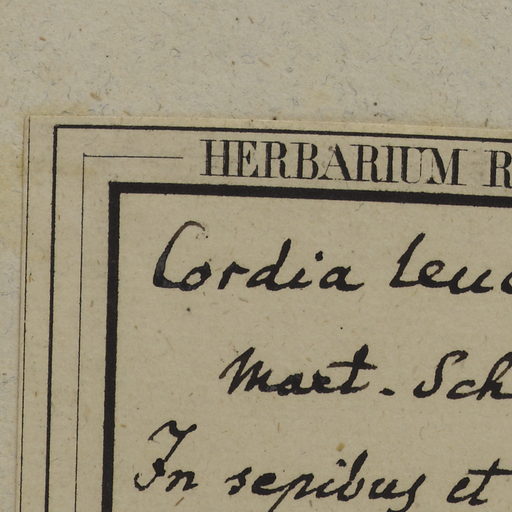 HERBARIUM R
Cordia leuc
Mart. Sch
In sepibus et